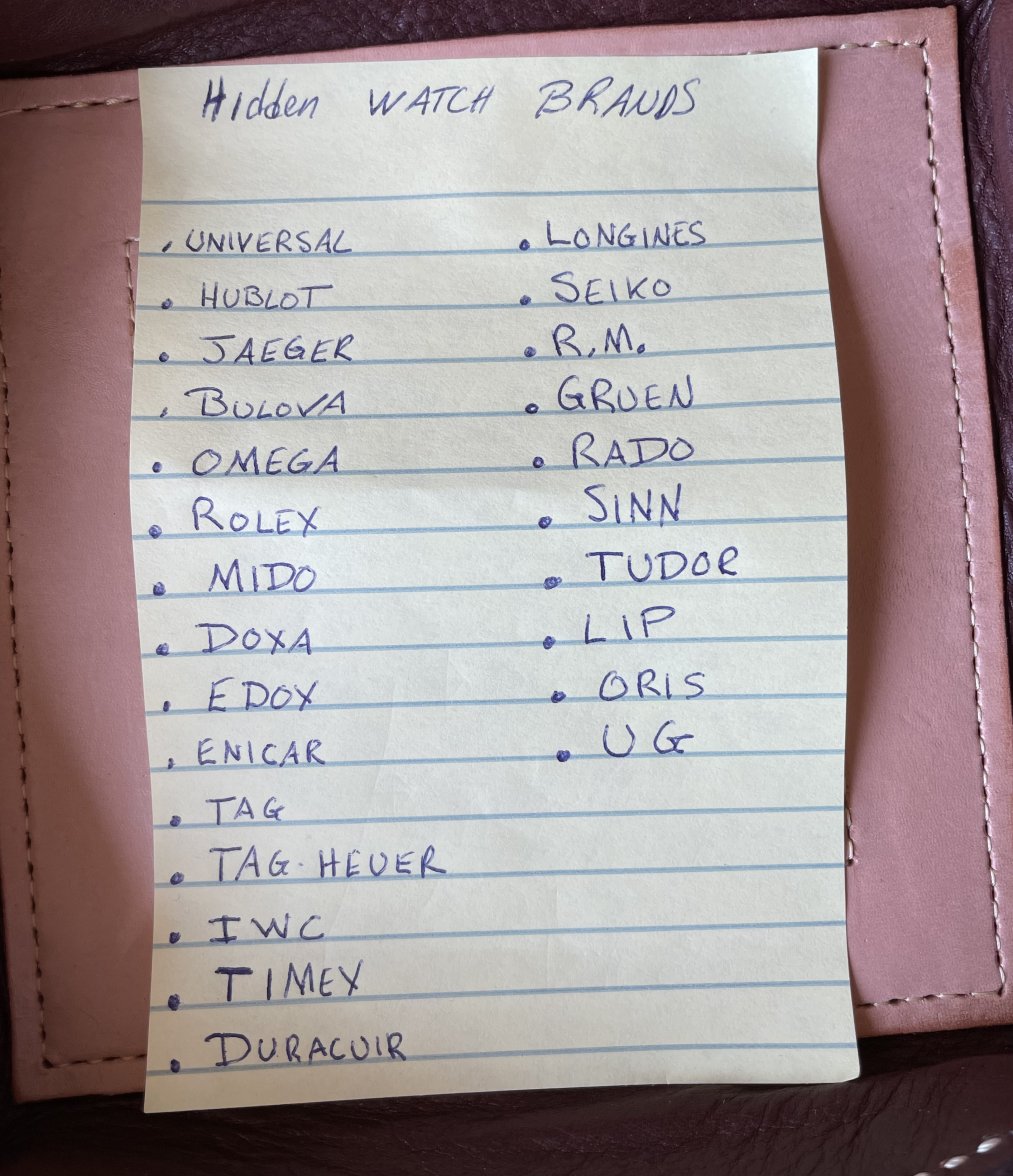 Hidden WATCH BRANDS
. UNIVERSAL
. HUBLOT
. JAEGER
. BULOVA
. OMEGA
. ROLEX
. MIDO
. DOXA
. EDOX
. ENICAR
. TAG
. TAG-HEUER
. IWC
. TIMEX
. DURACUIR
. LONGINES
. SEIKO
. R.M.
. GRUEN
. RADO
. SINN
. TUDOR
. LIP
. ORIS
. UG